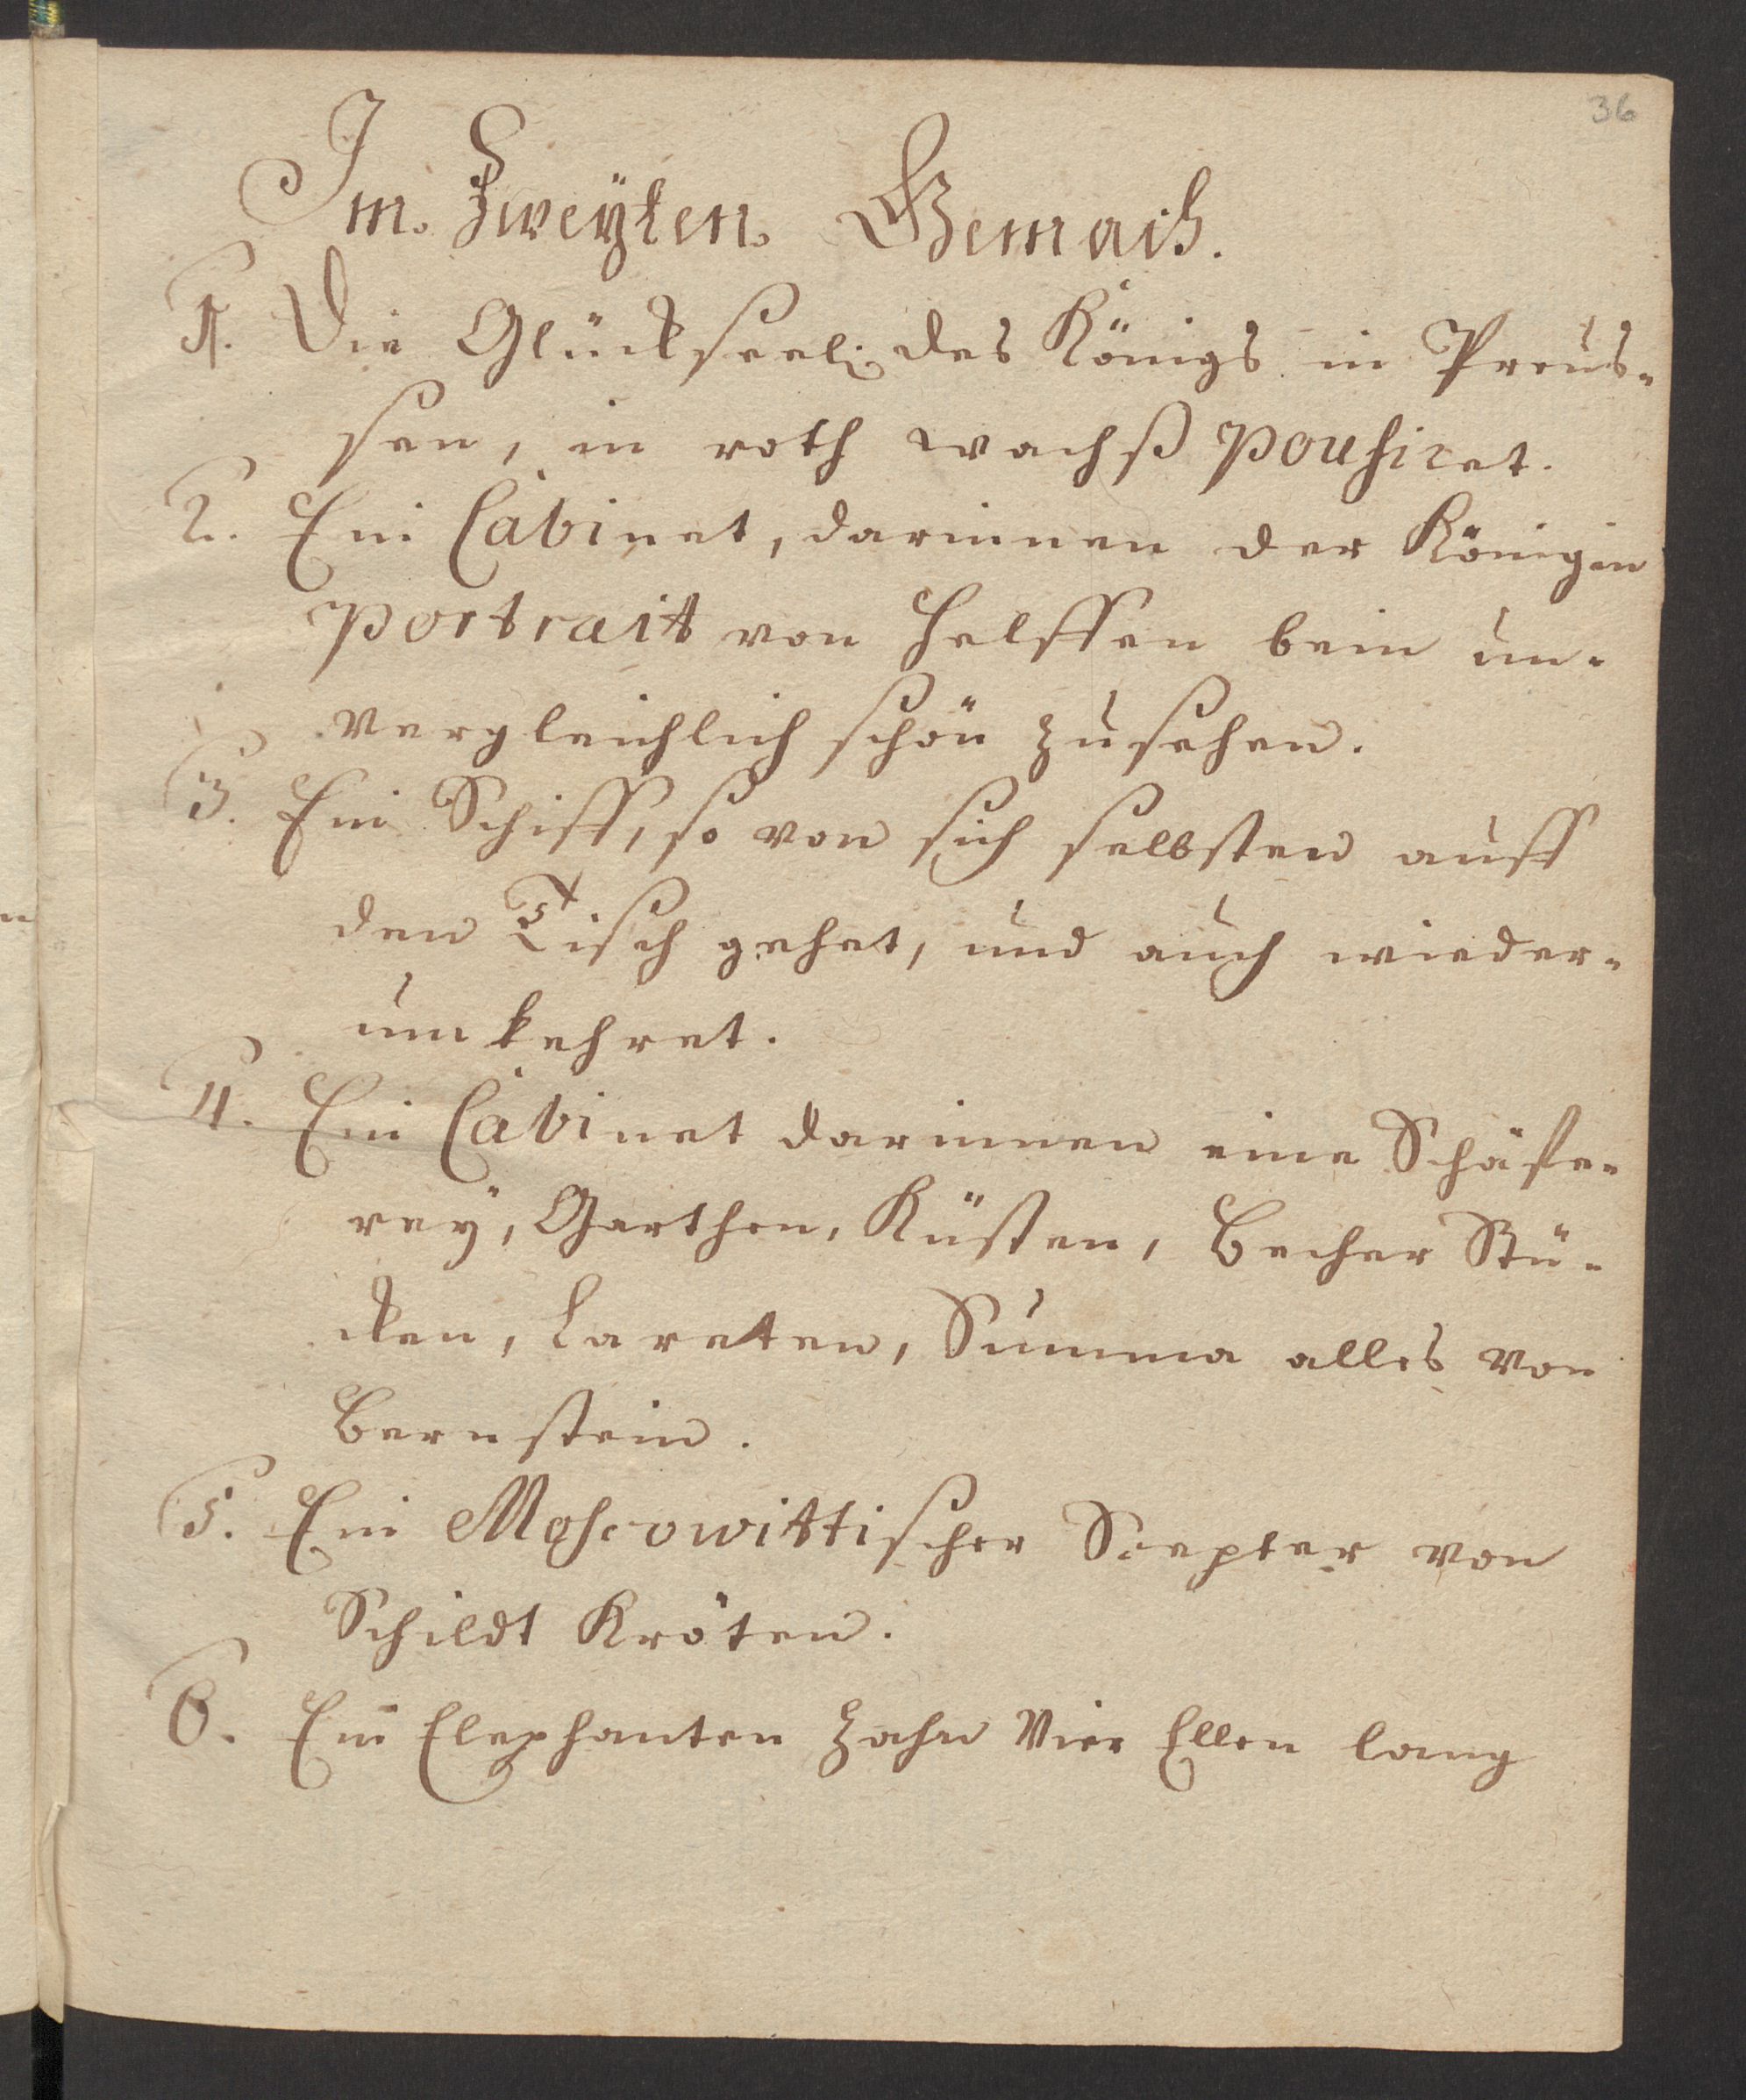 36
Im Zweÿten Gemach.
1. Die Glückseel: des Königs in Preus-
sen, in roth wachß pousiret.
2. Ein Cabinet, darinnen der Königin
Portrait von Helffen bein un-
vergleichlich schön zusehen.
3. Ein Schiff, so von sich selbsten auff
den Tisch gehet, und auch wieder-
umkehret.
4. Ein Cabinet darinnen eine Schäfe-
reÿ, Garthen, Küsten, Becher Stü-
cken, Lareten, Summa alles von
Bernstein.
5. Ein Moscowittischer Scepter von
Schildt Kröten.
6. Ein Elephanten Zahn Vier Ellen lang